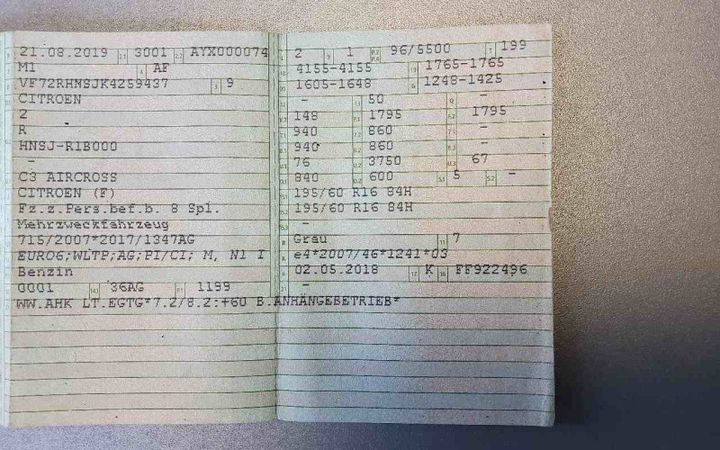 21.08.2019 3001 AYX000074
M1 AF
VF72RHNSJK4259437 9
CITROEN
2
R
HNSJ-R1B000
-
C3 AIRCROSS
CITROEN (F)
Fz.z.Pers.bef.b. 8 Spl.
Mehrzweckfahrzeug
715/2007*2017/1347AG
EURO6;WLTP;AG;PI/CI; M, N1 I
Benzin
0001 36AG 1199
WW.AHK LT.EGTG*7.2/8.2:+60 B.ANHÄNGEBETRIEB*
2 1 96/5500 199
4155-4155 1765-1765
1605-1648 1248-1425
- 50 -
148 1795 1795
940 860 -
940 860 -
76 3750 67
840 600 5 -
195/60 R16 84H
195/60 R16 84H
-
Grau 7
e4*2007/46*1241*03
02.05.2018 K FF922496
-